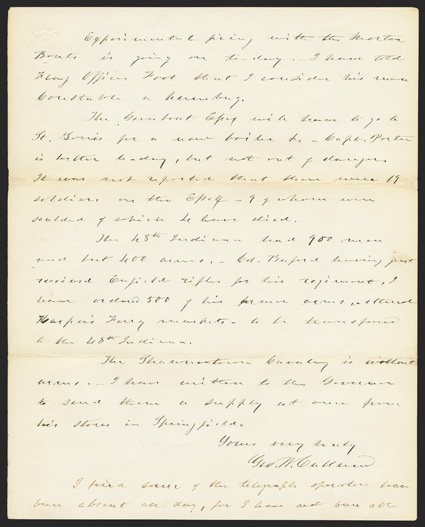 Experimental firing with the Mortar
Boats is going on to-day. - I have told
Flag Officer Foot that I consider his man
Constable a humbug.
The Gunboat Essex will have to go to
St. Louis for a new boiler &c. - Capt. Porter
is better to-day, but not out of danger.
It was not reported that there were 19
soldiers on the Essex - 9 of whom were
scalded of which 4 have died.
The 48th Indiana had 900 men
and but 400 arms. - Col. Buford having just
received Enfield rifles for his regiment, I
have ordered 500 of his former arms, altered
Harper's Ferry muskets - to be transferred
to the 48th Indiana.
The Shawneetown Cavalry is without
arms. - I have written to the Governor
to send them a supply at once from
his stores in Springfield.
Yours very truly
Geo. W. Cullum
I find some of the telegraph operators have
been absent all day, for I have not been able